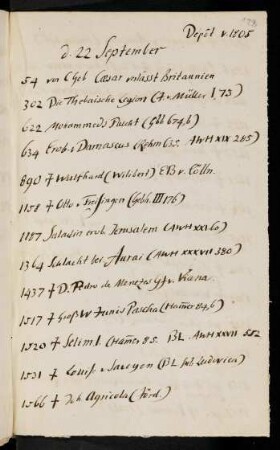 Depôt v. 1805
d. 22 September
54 vor Chrb Cæsar verlässt Britannien
302 Die Thebaische Legion (J. v. Müller I, 73)
622 Mohammeds Flucht (Gbl 674,6)
634 Erob. v Damascus (Rehm 635. AWH XIX 285)
890 † Willibert) EB v. Cölln.
1158 † Otto v Freysingen (Gebh. III 176)
1187 Saladin erob Jerusalem (AWH XXI 60)
1364 Schlacht bei Aurai (AWH XXXVII 380)
1437 † D. Pedro de Menezes Gf v. Viana
1517 † Großw Junis Pascha (Hamer 84,6)
1520 † Selim I (Hamer 85. BL. AWH XXVII 552
1531 † Louise v Savoyen (BL hat Ludovica)
1566 † Joh Agricola (Förd)